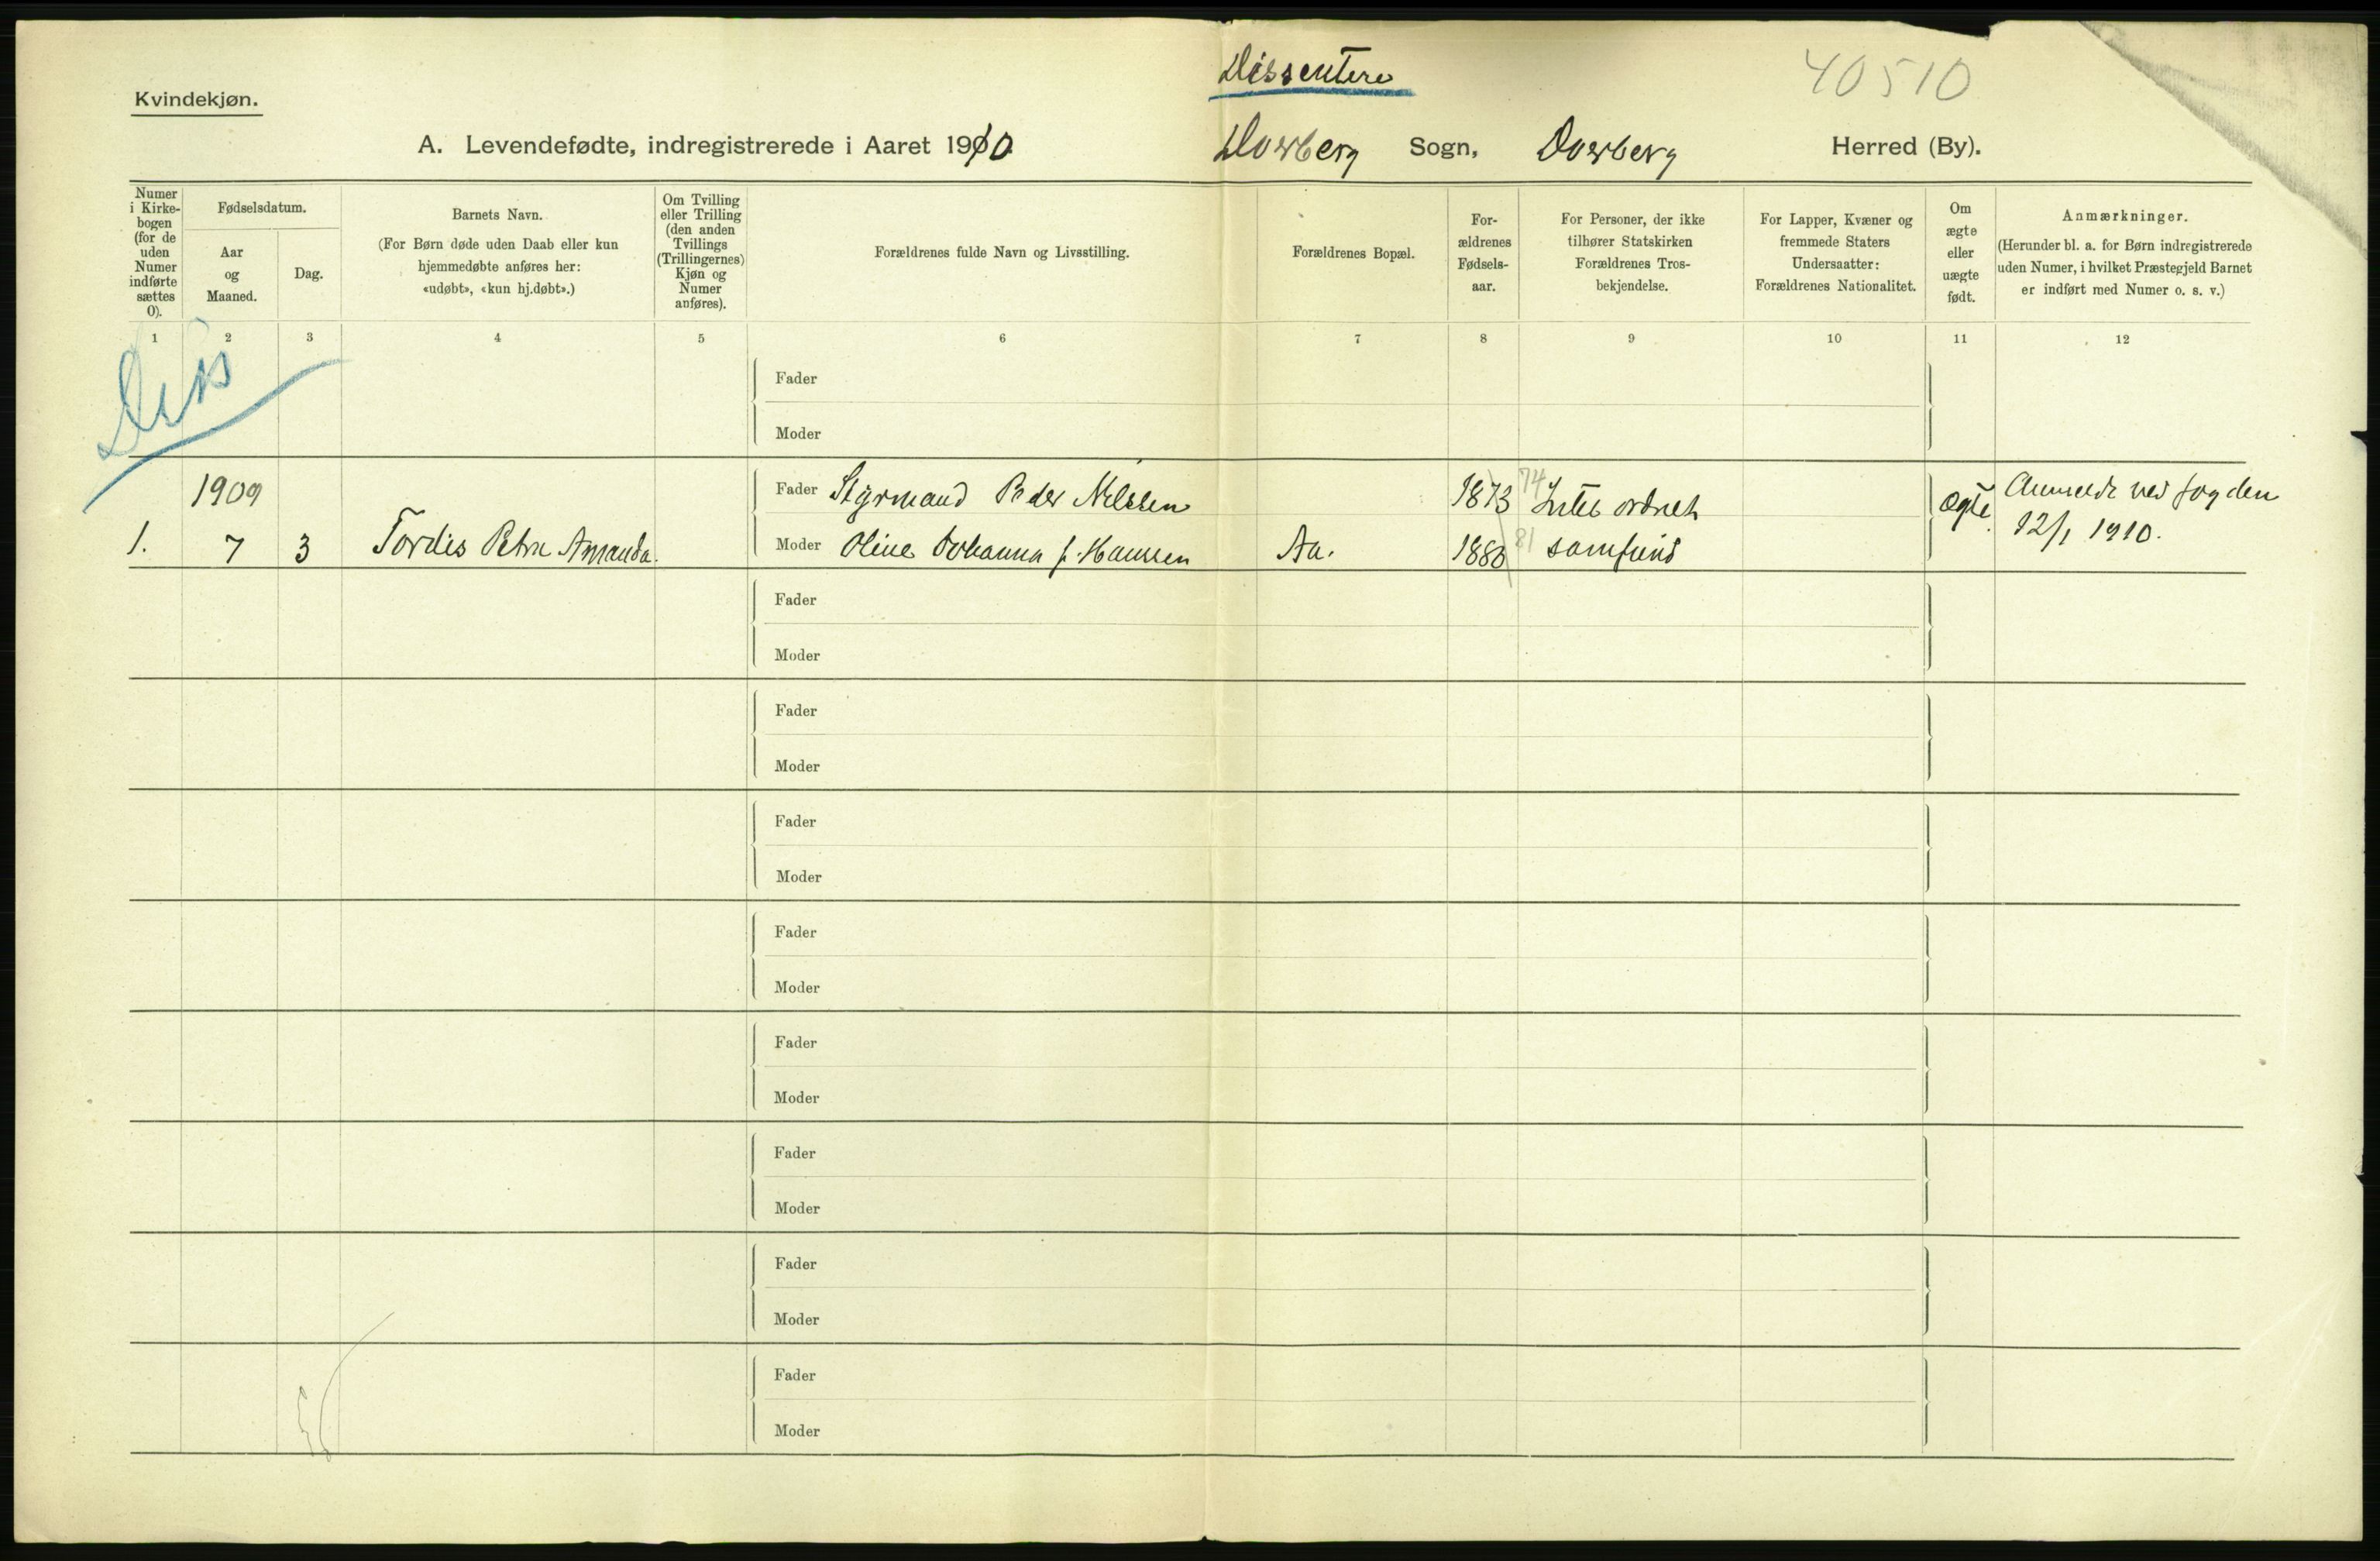 Dissentere
40510
Kvindekjøn.
A. Levendefødte, indregistrerede i Aaret 1910 Dverberg Sogn, Dverberg Herred (By).
Numer i Kirke-bogen (for de uden Numer indførte sættes 0).
Fødselsdatum.
Aar og Maaned.
Dag.
Barnets Navn.
(For Børn døde uden Daab eller kun hjemmedøbte anføres her: «udøbt», «kun hj.døbt».)
Om Tvilling eller Trilling (den anden Tvillings (Trillingernes) Kjøn og Numer anføres).
Forældrenes fulde Navn og Livsstilling.
Forældrenes Bopæl.
For-ældrenes Fødsels-aar.
For Personer, der ikke tilhører Statskirken Forældrenes Tros-bekjendelse.
For Lapper, Kvæner og fremmede Staters Undersaatter: Forældrenes Nationalitet.
Om ægte eller uægte født.
Anmærkninger.
(Herunder bl. a. for Børn indregistrerede uden Numer, i hvilket Præstegjeld Barnet er indført med Numer o. s. v.)
1 2 3 4 5 6 7 8 9 10 11 12
Diss
Fader
Moder
1909 Fader Styrmand Peder Nilssen 1873 74 Intet ordnet Ægte Anmeldt ved fogden
1. 7 3 Tordis Petra Amanda. Moder Oline Johanna f. Hanssen Aa. 1880 81 samfund 12/1 1910.
Fader
Moder
Fader
Moder
Fader
Moder
Fader
Moder
Fader
Moder
Fader
Moder
Fader
Moder
Fader
Moder